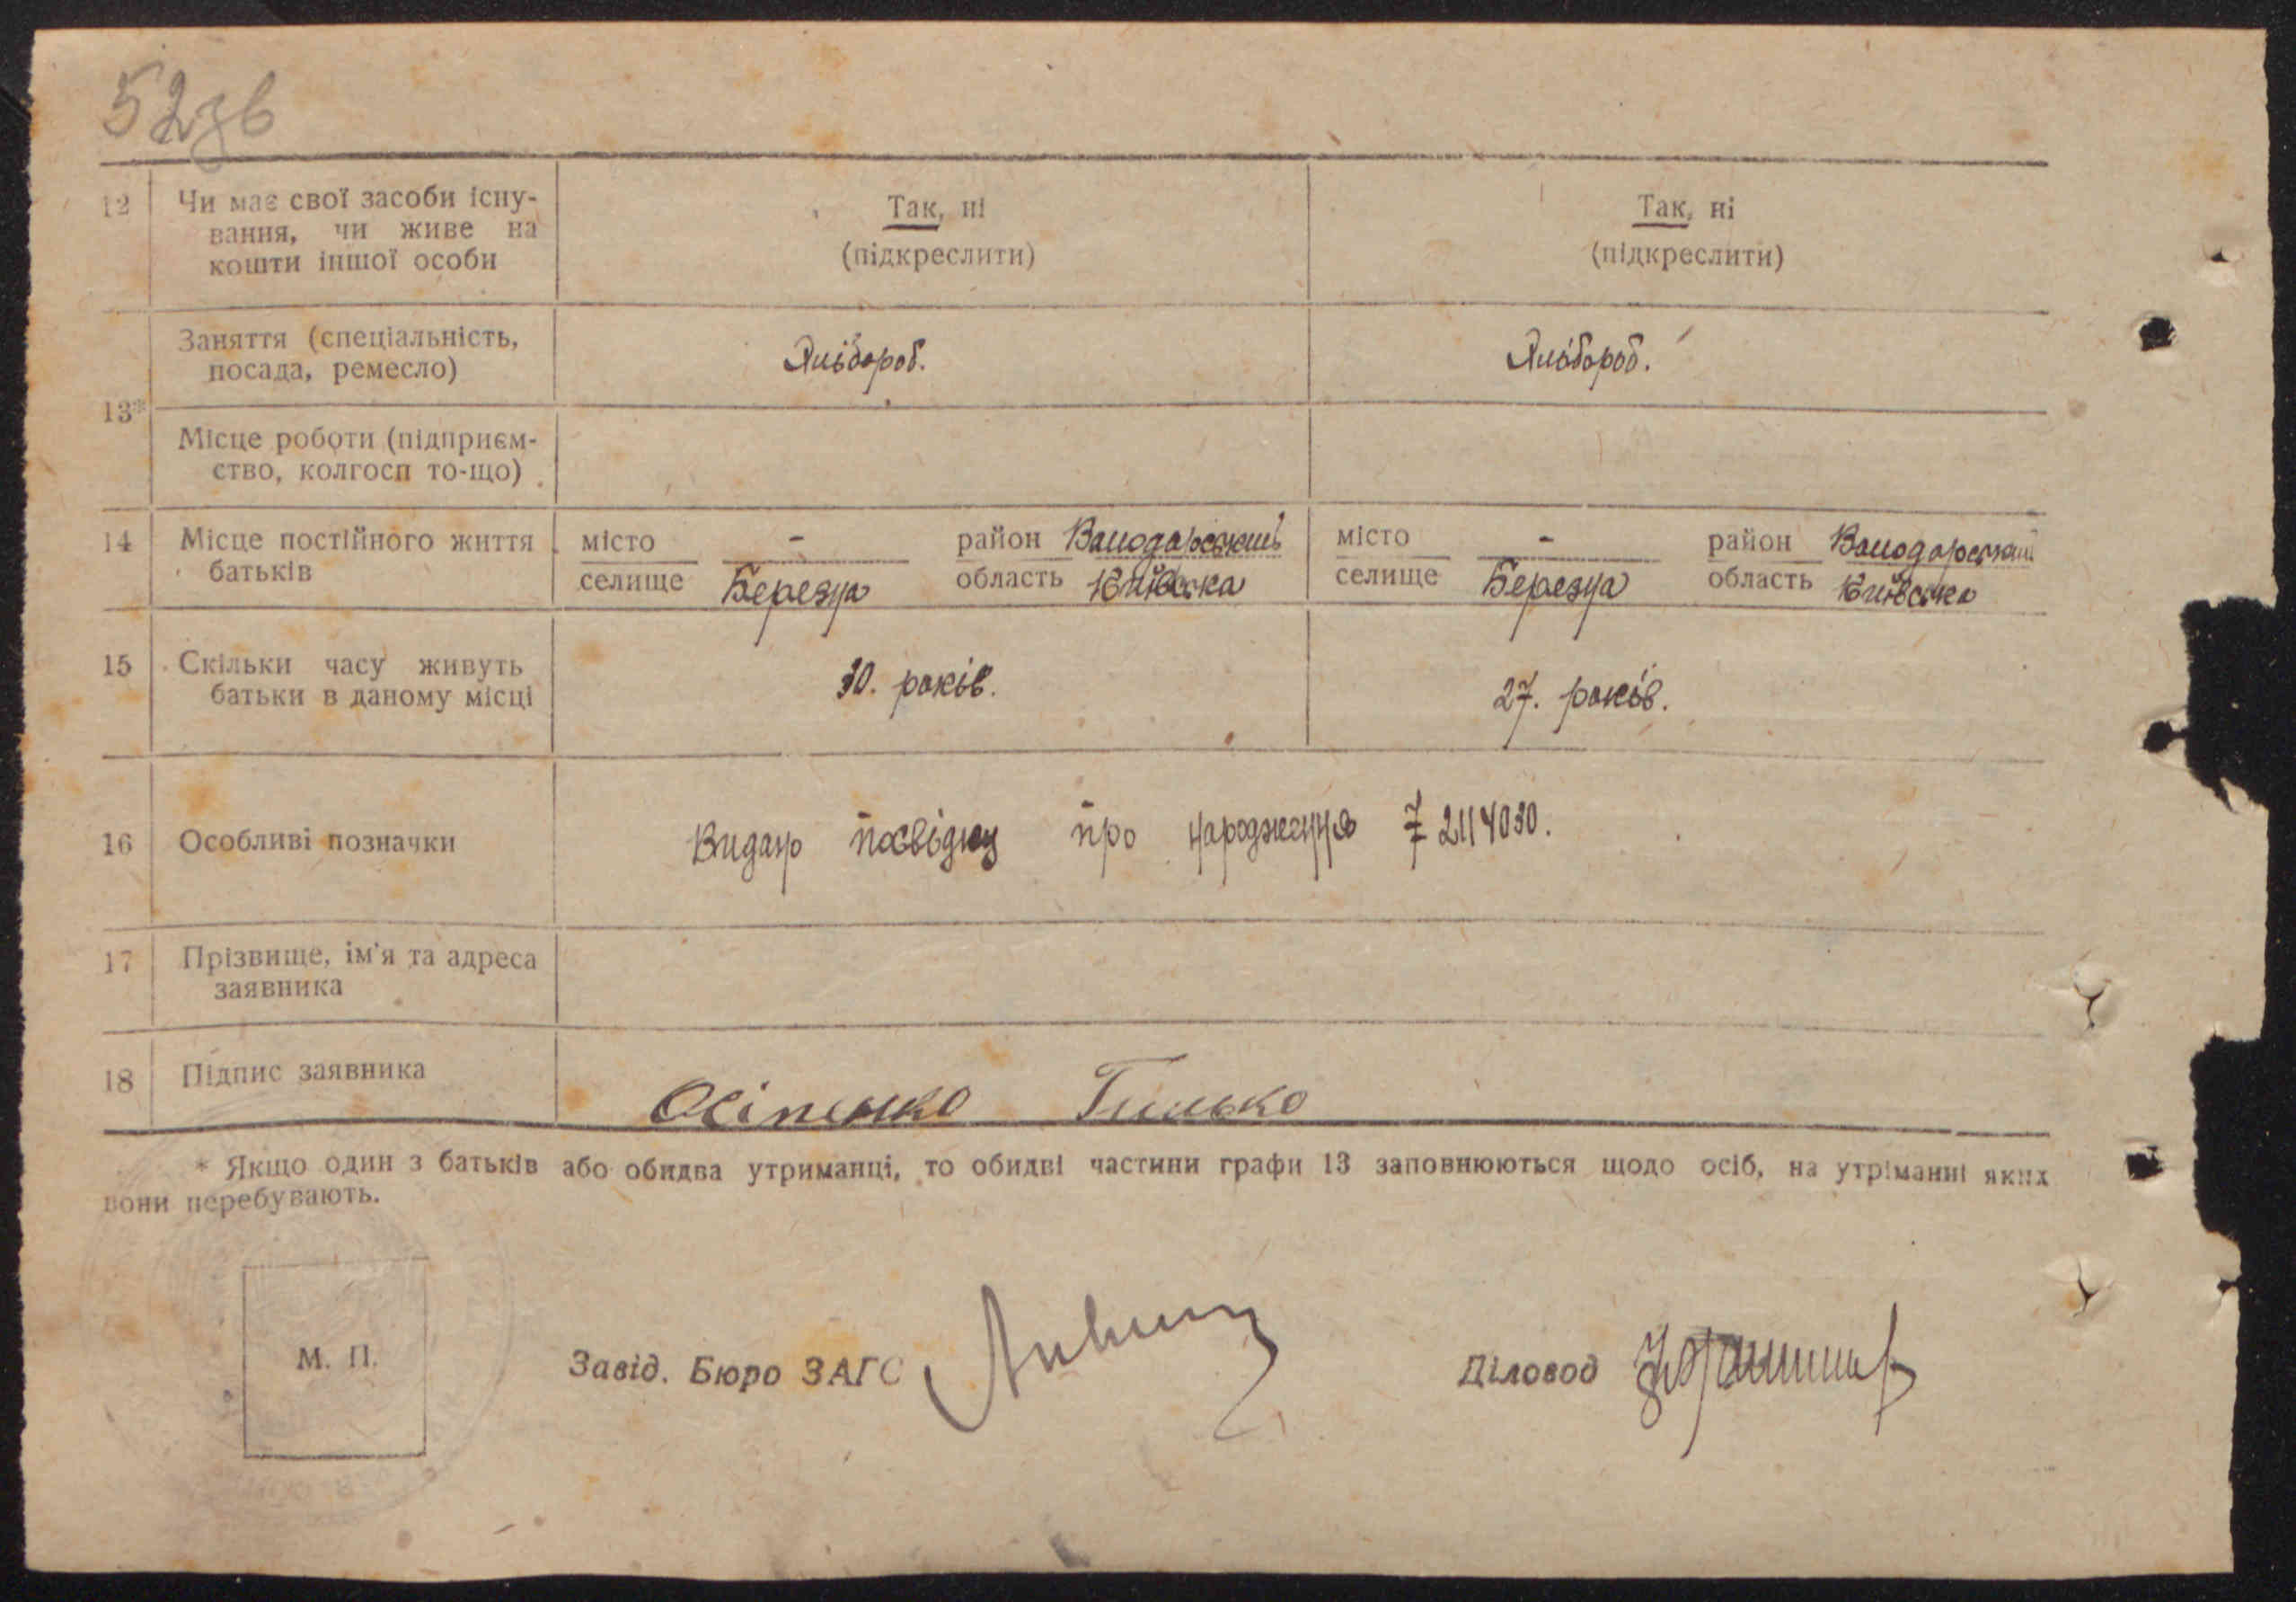 52зв
12 Чи має свої засоби існу-
вання, чи живе на
кошти іншої особи
Так, ні
(підкреслити)
Так, ні
(підкреслити)
13*
Заняття (спеціальність,
посада, ремесло)
Хлібороб.
Хлібороб.
Місце роботи (підприєм-
ство, колгосп то-що)
14 Місце постійного життя
батьків
місто - район Володарський
селище Березна область Київська
місто - район Володарський
селище Березна область Київська
15 Скільки часу живуть
батьки в даному місці
30. років.
27. років.
16 Особливі позначки
Видано посвідку про народження 7 2114030.
17 Прізвище, ім'я та адреса
заявника
18 Підпис заявника
Осіпенко
* Якщо один з батьків або обидва утриманці, то обидві частини графи 13 заповнюються щодо осіб, на утріманні яких
вони перебувають.
М. П.
Завід. Бюро ЗАГС
Діловод